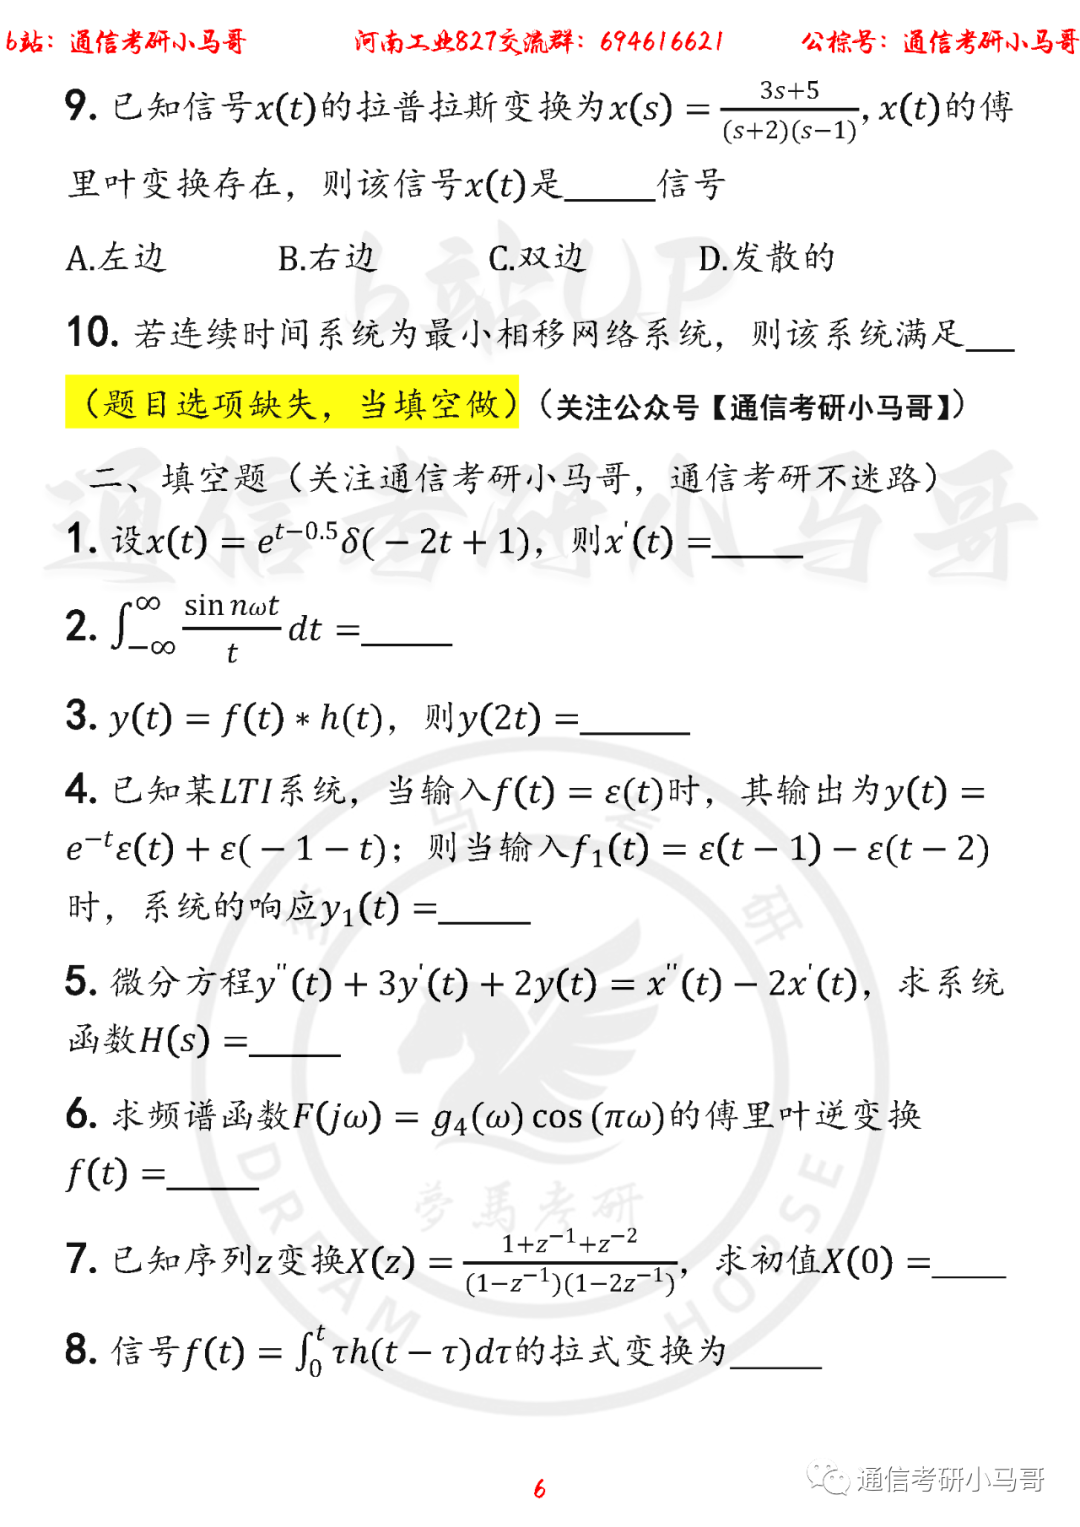 b站：通信考研小马哥 河南工业827交流群：694616621 公棕号：通信考研小马哥
9. 已知信号x(t)的拉普拉斯变换为x(s) = \frac{3s+5}{(s+2)(s−1)}, x(t)的傅
里叶变换存在，则该信号x(t)是_____信号
A.左边 B.右边 C.双边 D.发散的
10. 若连续时间系统为最小相移网络系统，则该系统满足___
（题目选项缺失，当填空做）（关注公众号【通信考研小马哥】）
二、填空题（关注通信考研小马哥，通信考研不迷路）
1. 设x(t) = e^{t−0.5}δ(−2t + 1)，则x'(t) =_____
2. \int_{−∞}^{∞} \frac{sin nωt}{t} dt =_____
3. y(t) = f(t) ∗ h(t)，则y(2t) =______
4. 已知某LTI系统，当输入f(t) = ε(t)时，其输出为y(t) =
e^{−t}ε(t) + ε(−1 − t)；则当输入f₁(t) = ε(t − 1) − ε(t − 2)
时，系统的响应y₁(t) =_____
5. 微分方程y''(t) + 3y'(t) + 2y(t) = x''(t) − 2x'(t)，求系统
函数H(s) =_____
6. 求频谱函数F(jω) = g₄(ω) cos (πω)的傅里叶逆变换
f(t) =_____
7. 已知序列z变换X(z) = \frac{1+z^{−1}+z^{−2}}{(1−z^{−1})(1−2z^{−1})}，求初值X(0) =____
8. 信号f(t) = \int_{0}^{t} τh(t − τ)dτ的拉式变换为_____
b站UP
通信考研小马哥
梦马考研
夢馬考研
DREAM HORSE
通信考研小马哥
6